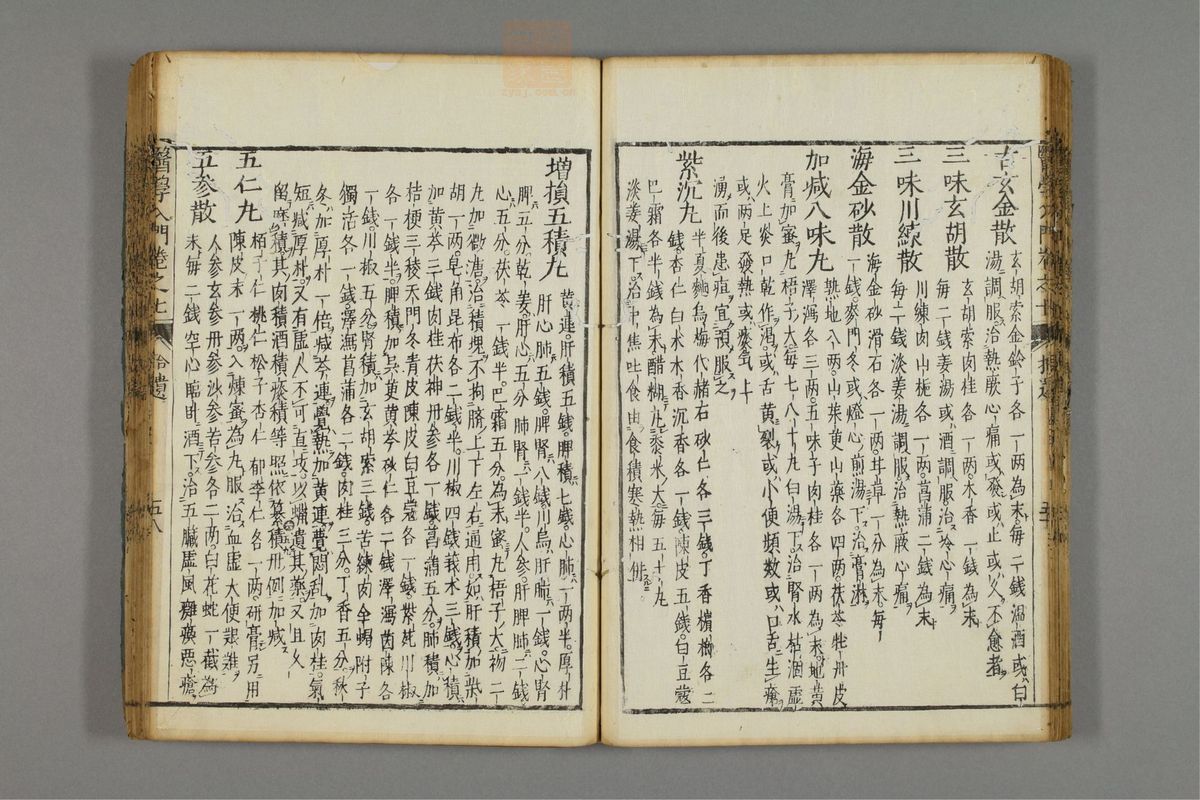 古玄金散 玄胡索金鈴子各一兩為末每二錢溫酒或白
湯調服治熱厥心痛或發或止或久不愈者
三味玄胡散 玄胡索肉桂各一兩木香一錢為末
每二錢姜湯或酒調服治冷心痛
三味川練散 川練肉山梔各一兩菖蒲二錢為末
每二錢淡姜湯調服治熱厥心痛
海金砂散 海金砂滑石各一兩甘草一分為末每
一錢麥門冬或燈心煎湯下治膏淋
加減八味丸 熟地八兩山茱萸山藥各四兩茯苓牡丹皮
澤瀉各三兩五味子肉桂各一兩為末地黃
膏加蜜丸梧子大每七八十丸白湯下治腎水枯涸虛
火上炎口乾作渴或舌黃裂或小便頻數或口舌生瘡
或兩足發熱或痰氣上
湧而後患疽宜預服之
紫沉丸 半夏麯烏梅代赭石砂仁各三錢丁香檳榔各二
錢杏仁白朮木香沉香各一錢陳皮五錢白豆蔻
巴霜各半錢為末醋糊丸黍米大每五十丸
淡姜湯下治中焦吐食由食積寒熱相併
增損五積丸 黃連肝積五錢脾積七錢心肺一兩半厚朴
肝心肺五錢脾腎八錢川烏肝肺一錢心腎
脾五分乾姜肝心五分肺腎一錢半人參肝脾肺二錢
心五分茯苓一錢半巴霜五分為末蜜丸梧子大初二
丸加微溏治積塊不拘臍上下左右通用如肝積加柴
胡一兩皂角昆布各二錢半川椒四錢莪朮三錢心積
加黃芩三錢肉桂茯神丹參各一錢菖蒲五分肺積加
桔梗三稜天門冬青皮陳皮白豆蔻各一錢紫菀川椒
各一錢半脾積加吳茱黃芩砂仁各二錢澤瀉茵陳各
一錢川椒五分腎積加玄胡索三錢苦練肉全蝎附子
獨活各一錢澤瀉菖蒲各二錢肉桂三分丁香五分秋
冬加厚朴一倍減芩連覺熱加黃連覺悶亂加肉桂氣
短減厚朴又有虛人不可直攻以蠟匱其藥又且久
留磨積其肉積酒積痰積等照依纂積丹例加減
五仁丸 柏子仁桃仁松子杏仁郁李仁各一兩研膏另用
陳皮末一兩入煉蜜為丸服治血虛大便艱難
五參散 人參玄參丹參沙參苦參各二兩白花蛇一截為
末每二錢空心臨臥酒下治五臟虛風癬癩惡瘡
醫學入門卷之七 拾遺 五八